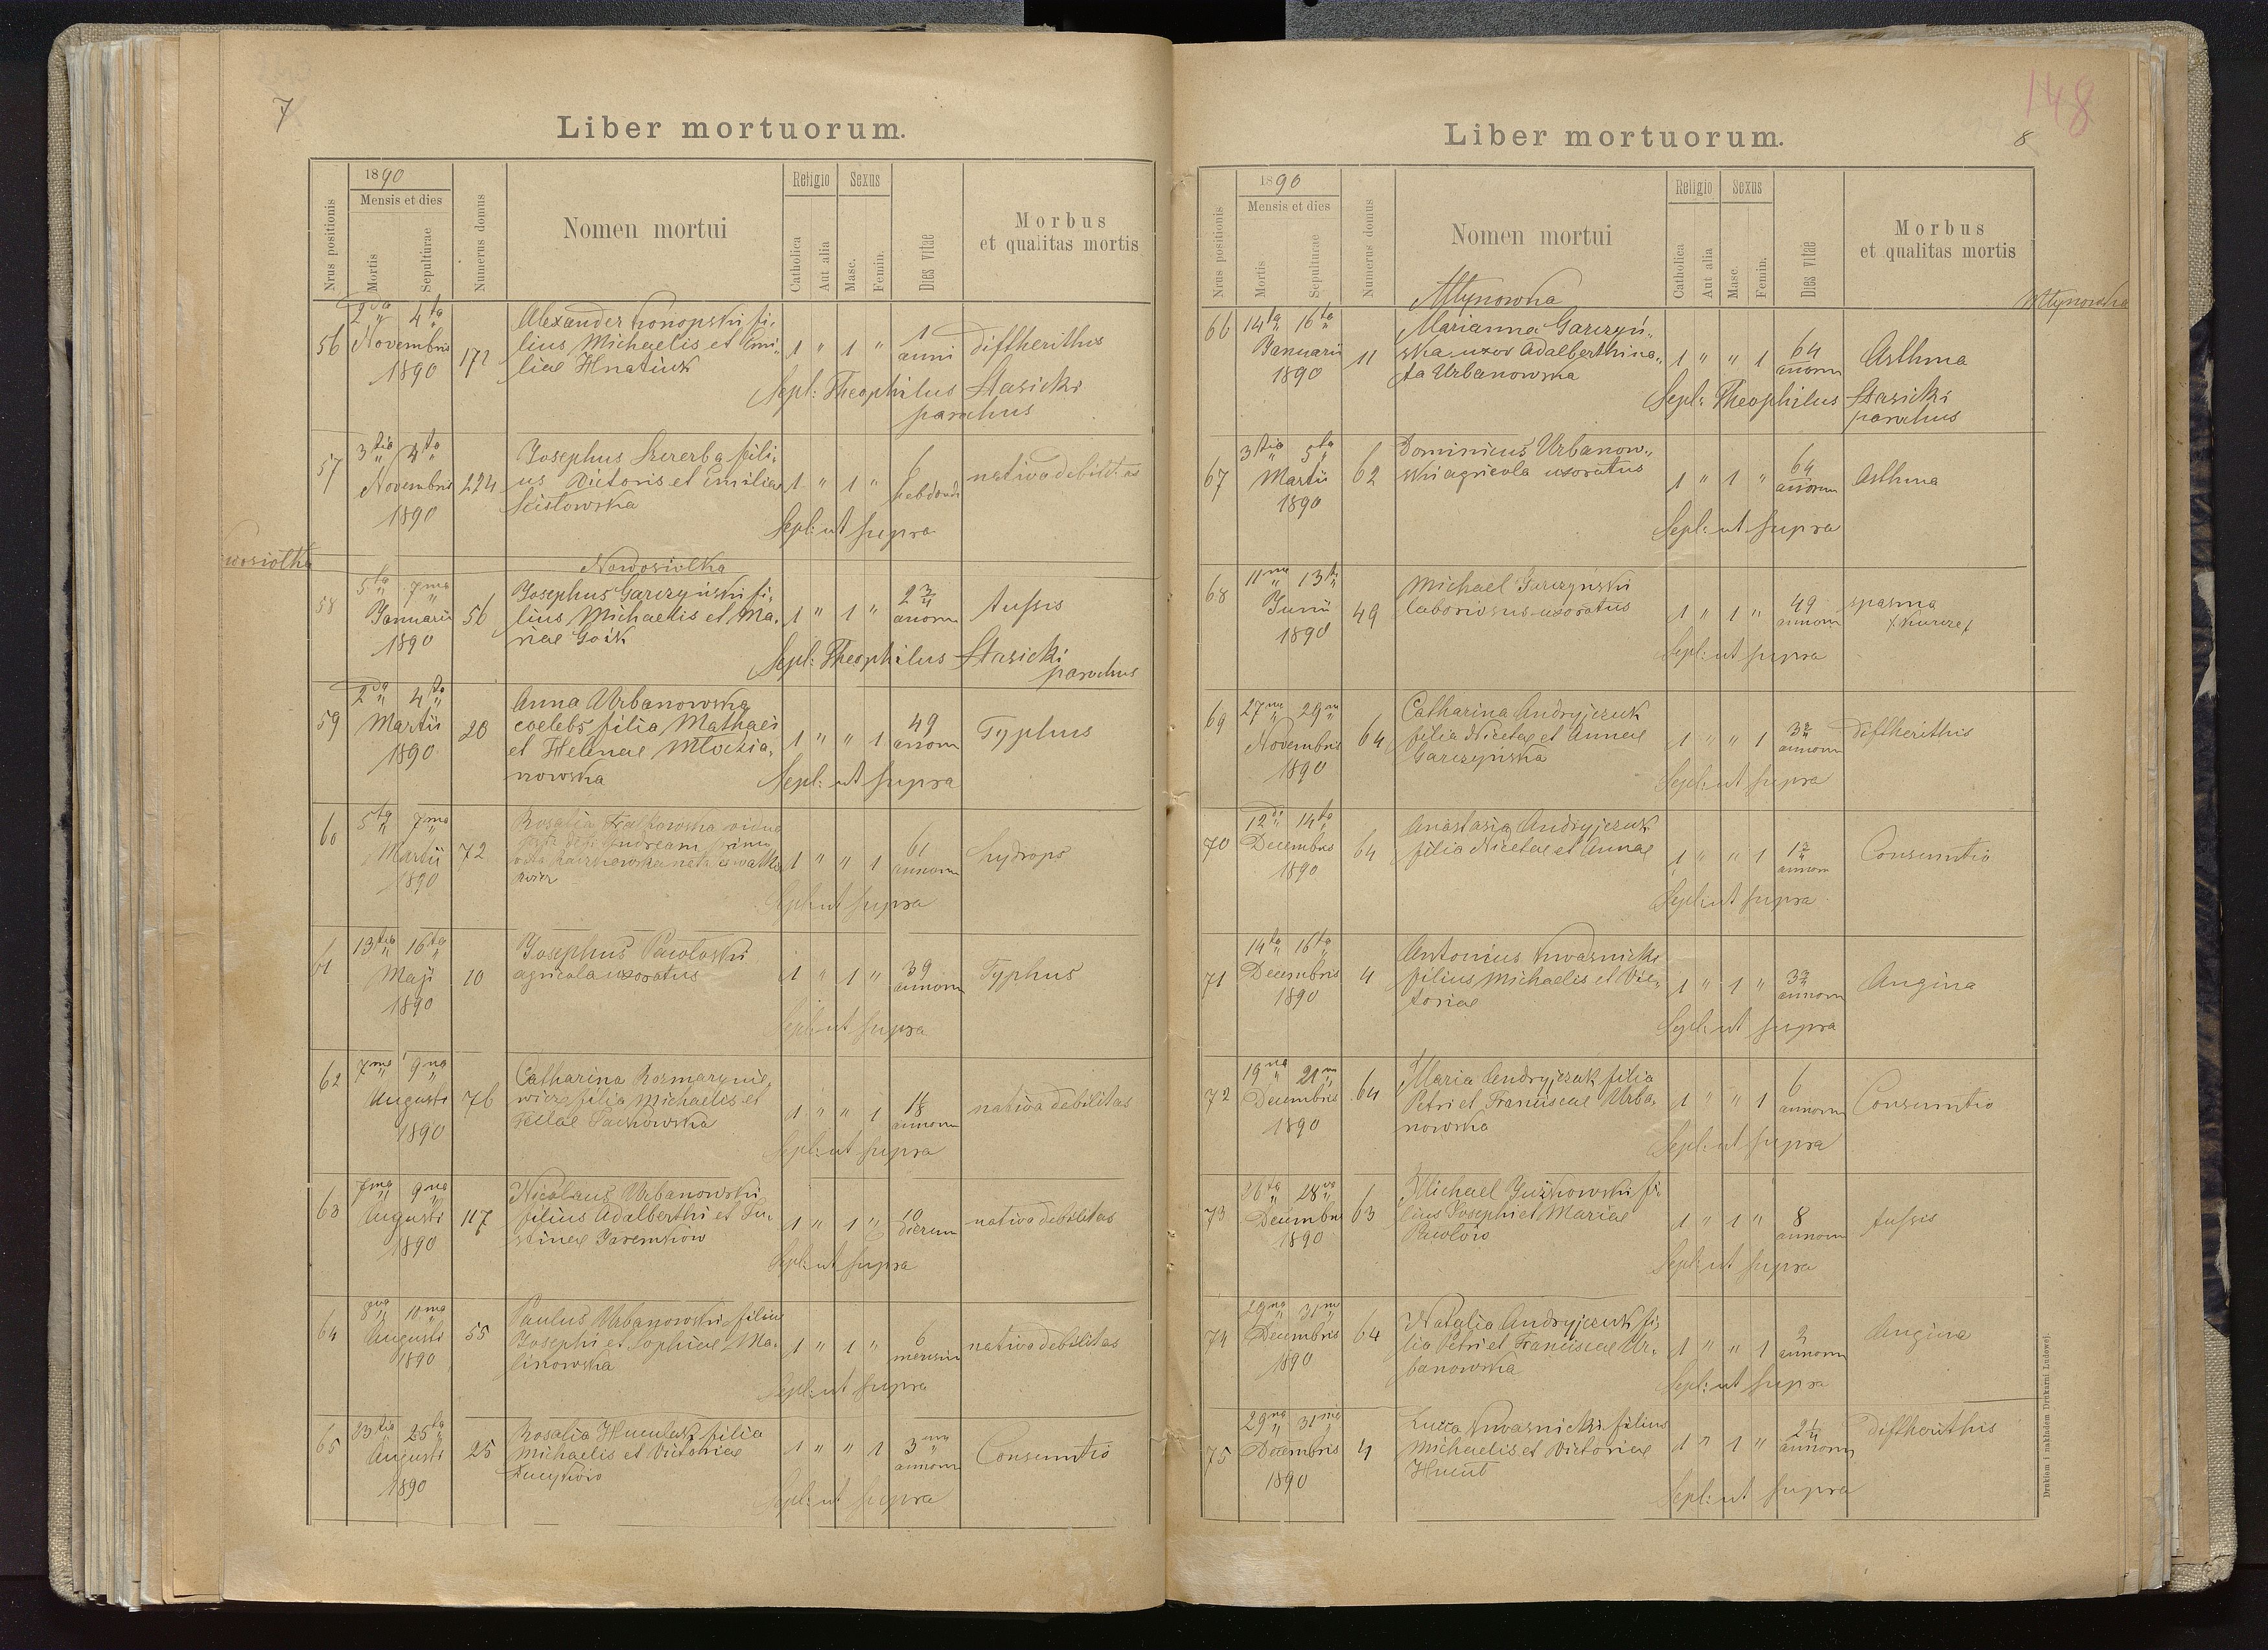 7
Liber mortuorum.
Nrus positionis
1890
Mensis et dies
Mortis
Sepulturae
Numerus domus
Nomen mortui
Religio
Sexus
Catholica
Aut alia
Masc.
Femin.
Dies vitae
Morbus
et qualitas mortis
56
2da 4ta
Novembris
1890
172
Alexander Konopski fi-
lius Michaelis et Emi-
liae Hnatiuk
1 " 1 "
1
anni
diftherithis
Sepl: Theophilus Stasicki
parochus
57
3tia 4ta
Novembris
1890
224
Josephus Szczerba fili-
us Victoris et Emiliae
Kistowska
1 " 1 "
6
hebdomd
nativa debilitas
Sepl: ut supra
Nowosiolka
58
5ta 7ma
Januarii
1890
56
Josephus Garczyński fi-
lius Michaelis et Ma-
riae Goik
1 " 1 "
2 3/4
annorum
tussis
Sepl: Theophilus Stasicki
parochus
59
2da 4ta
Martii
1890
20
Anna Urbanowska
coelebs filia Mathaei
et Helenae Młodzia-
nowska
1 " " 1
49
annorum
Typhus
Sepl: ut supra
60
5ta 7ma
Martii
1890
72
Rosalia vidua
Andream primo
1 " " 1
61
annorum
hydrops
Sepl: ut supra
61
13tia 16ta
Maji
1890
10
Josephus Pawłoski
agricola uxoratus
1 " 1 "
39
annorum
Typhus
Sepl: ut supra
62
7ma 9na
Augusti
1890
76
Catharina Rozmarynie-
wicz filia Michaelis et
Teclae Pachowska
1 " " 1
annorum
nativa debilitas
Sepl: ut supra
63
7ma 9na
Augusti
1890
117
Nicolaus Urbanowski
filius Adalberthi et Ju-
stinae Jaremkiow
1 " 1 "
10
dierum
nativa debilitas
Sepl: ut supra
64
8va 10ma
Augusti
1890
55
Paulus Urbanowski filius
Josephi et Sophiae Ma-
linowska
1 " 1 "
6
mensium
nativa debilitas
Sepl: ut supra
65
23tia 25ta
Augusti
1890
25
Rosalia Huculak filia
Michaelis et Victoriae
1 " " 1
3
annorum
Consumtio
Sepl: ut supra
148
8
Liber mortuorum.
Nrus positionis
1890
Mensis et dies
Mortis
Sepulturae
Numerus domus
Nomen mortui
Religio
Sexus
Catholica
Aut alia
Masc.
Femin.
Dies vitae
Morbus
et qualitas mortis
Młynowka
Młynowka
66
14ta 16ta
Januarii
1890
11
Marianna Garczyń-
ska uxor Adalberthi na-
ta Urbanowska
1 " " 1
64
annorum
Asthma
Sepl: Theophilus Stasicki
parochus
67
3tia 5ta
Martii
1890
62
Dominicus Urbanow-
ski agricola uxoratus
1 " 1 "
64
annorum
Asthma
Sepl: ut supra
68
11ma 13tia
Junii
1890
49
Michael Garczynski
laboriosus uxoratus
1 " 1 "
49
annorum
spasma
/kurcze/
Sepl: ut supra
69
27ma 29na
Novembris
1890
64
Catharina Andryjczuk
filia Nicetae et Annae
Garczyńska
1 " " 1
annorum
diftherithis
Sepl: ut supra
70
12da 14ta
Decembris
1890
64
Anastasia Andryjczuk
filia Nicetae et Annae
1 " " 1
annorum
Consumtio
Sepl: ut supra
71
14ta 16ta
Decembris
1890
4
Antonius Kwasnicki
filius Michaelis et Vic-
toriae
1 " 1 "
annorum
Angina
Sepl: ut supra
72
19na 21ma
Decembris
1890
64
Maria Andryjczuk filia
Petri et Franciscae Urba-
nowska
1 " " 1
6
annorum
Consumtio
Sepl: ut supra
73
26ta 28va
Decembris
1890
63
Michael Juzkowski fi-
lius Josephi et Mariae
Pawlow
1 " 1 "
8
annorum
tussis
Sepl: ut supra
74
29na 31ma
Decembris
1890
64
Natalia Andryjczuk fi-
lia Petri et Franciscae Ur-
banowska
1 " " 1
3
annorum
Angina
Sepl: ut supra
75
29na 31ma
Decembris
1890
4
Lucca Kwasnicki filius
Michaelis et Victoriae
1 " 1 "
2 1/4
annorum
diftherithis
Sepl: ut supra
Drukiem i nakładem Drukarni Ludowej.